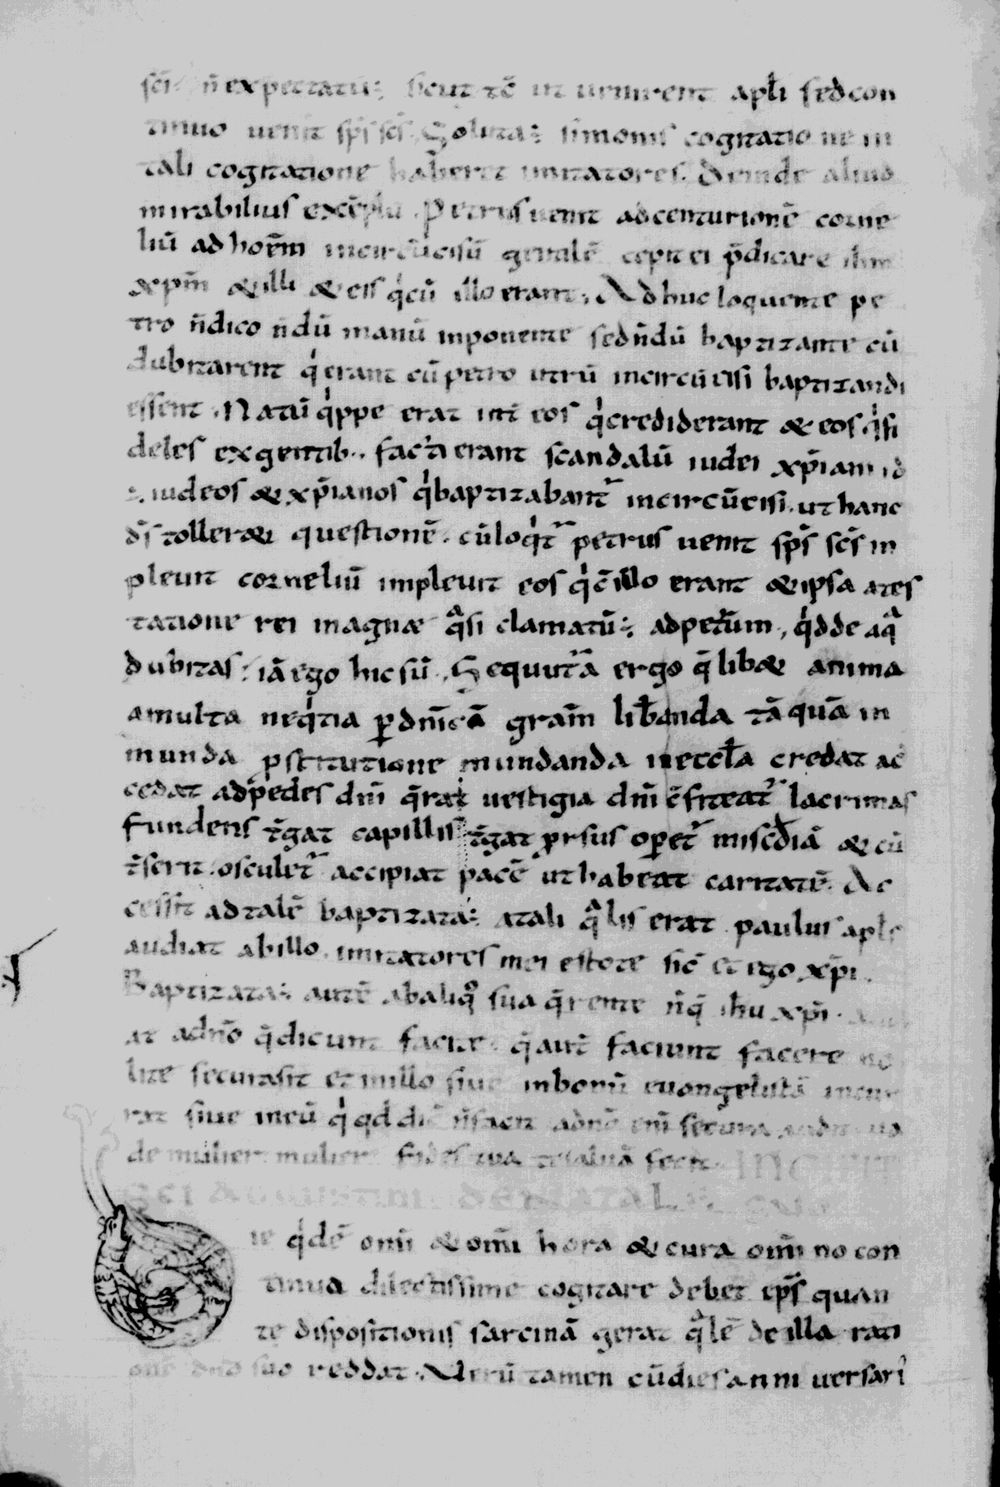 sc̄i n̄ expectatū; sicut tc̄ ut uenirent apl̄i sed con
tinuo uenit sp̄s sc̄s. Soluta; simonis cogitatio ne in
tali cogitatione haberet imitatores. Deinde aliud
mirabilius exēplū. Petrus uenit ad centurionē corne
liū ad hoēm incircūcisū gentilē cepit ei p̄dicare ihm̄
xp̄m & illi & eis qͥ cū illo erant. Adhuc loquente pe
tro n̄ dico n̄dū manū inponente sed n̄dū baptizante cū
dubitarent qͥ erant cū petro utrū incircūcisi baptizandi
essent. Natū qͥppe erat int̄ eos qͥ crediderant & eos qͥ fi
deles ex gentib. facti erant scandalū iudei xp̄iani
; iudeos & xp̄ianos qͥ baptizabant᷑ incircūcisi. ut hanc
d̄s toller& questionē. cū loqͥt᷑ petrus uenit sp̄s sc̄s in
pleuit corneliū impleuit eos qͥ c̄ illo erant & ipsa ates
tatione rei magnæ qͣsi clamatū; ad petrum, qͥd de aqͣ
dubitas; iā ego hic sū. Sequut᷑a ergo q̄lib& anima
a multa neqͥtia ꝑ dn̄icā gram̄ lib̄anda tāquā in
munda ꝓstitutione mundanda in eccl̄a credat ac
cedat ad pedes dn̄i q̄rat uestigia dn̄i c̄fiteat᷑ lacrimas
fundens t̄gat capillis t̄gat ꝓrsus oꝑet᷑ misc̄diā & cū
t̄serit. osculet᷑ accipiat pacē ut habeat caritatē. Ac
cessit ad talē baptizata; a tali qͣlis erat paulus apl̄s
audiat ab illo. imitatores mei estote sic̄ et ego xp̄i.
Baptizata; autē ab aliqͦ sua q̄rente n̄ q̄ ihu xp̄i.
at ad n̄o q̄ dicunt facite. q̄ aut̄ faciunt facere no
lite secura sit et in illo siue in bonū euangelistā incur
rat siue in eū qͥ qd dic̄ n̄ facit. ad dn̄ē em̄ secura audit ua
de mulier mulier fides tua te saluā fecit. INCIPIT
SCI AUGUSTINI DE NATALE
ie qͥdē om̄i & om̄i hora & cura om̄i no con
tinua dilectissime cogitare debet ep̄s quan
te dispositionis sarcinā gerat qͣlē de illa rati
onē dn̄o suo reddat. Uerū tamen cū dies anniuersari